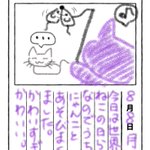 8月8日
今日は世界
ねこの日らし
なのでうち
にゃんこと
あそび
ました。
かわいすぎ
かわいい